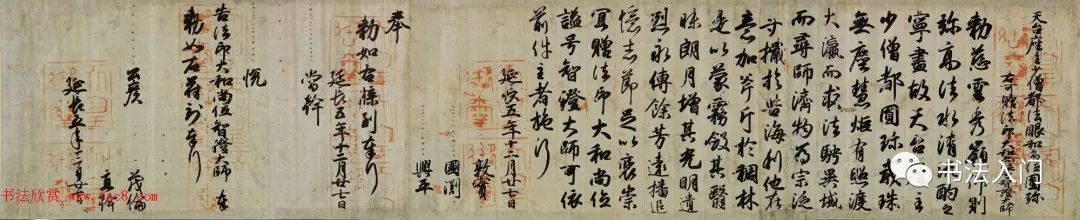 天台座主少僧都法眼和尚位圓珍
右可贈法印大和尚位号智證大師
勅慈雲秀嶺則
弥高法水清酌之
寧盡故天台座主
少僧都圓珍戒珠
無塵慧炬有照渡
大瀛而求法聘異域
而尋師濟物為宗泛
舟檝於苦海利他在
意加斧斤於稠林
是以蒙霧斂其翳
昧朗月增其光明遺
烈永傳餘芳遠播追
憶志節足以褒崇
冝贈法印大和尚位
謚号智證大師可依
前件主者施行
延長五年十二月廿七日
敦實
國渕
興平
奉
勅如右牒到奉行
延長五年十二月廿七日
當幹
悦
告法印大和尚位智證大師奉
勅如右符到奉行
茂倫
直幹
延長五年十二月廿七日
书法欣赏
书法入门